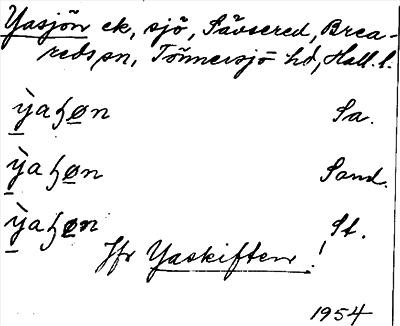 Yasjön ek, sjö, Sävsered, Brea-
reds sn, Tönnersjö hd, Hall. l.
ỳaɧøn Sa.
ỳaɧøn Sand.
ỳaɧøn St.
Jfr Yaskiften!
1954